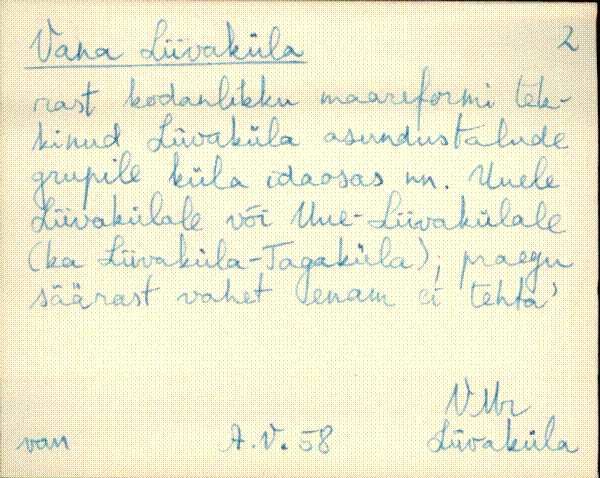 Vana Liivaküla 2
rast kodanlikku maareformi tek-
kinud Liivaküla asundustalude
grupile küla idaosas nn. Uuele
Liivakülale või Uue-Liivakülale
(ka Liivaküla-Tagaküla); praegu
säärast vahet enam ei tehta'
VMr
van A.V. 58 Liivaküla